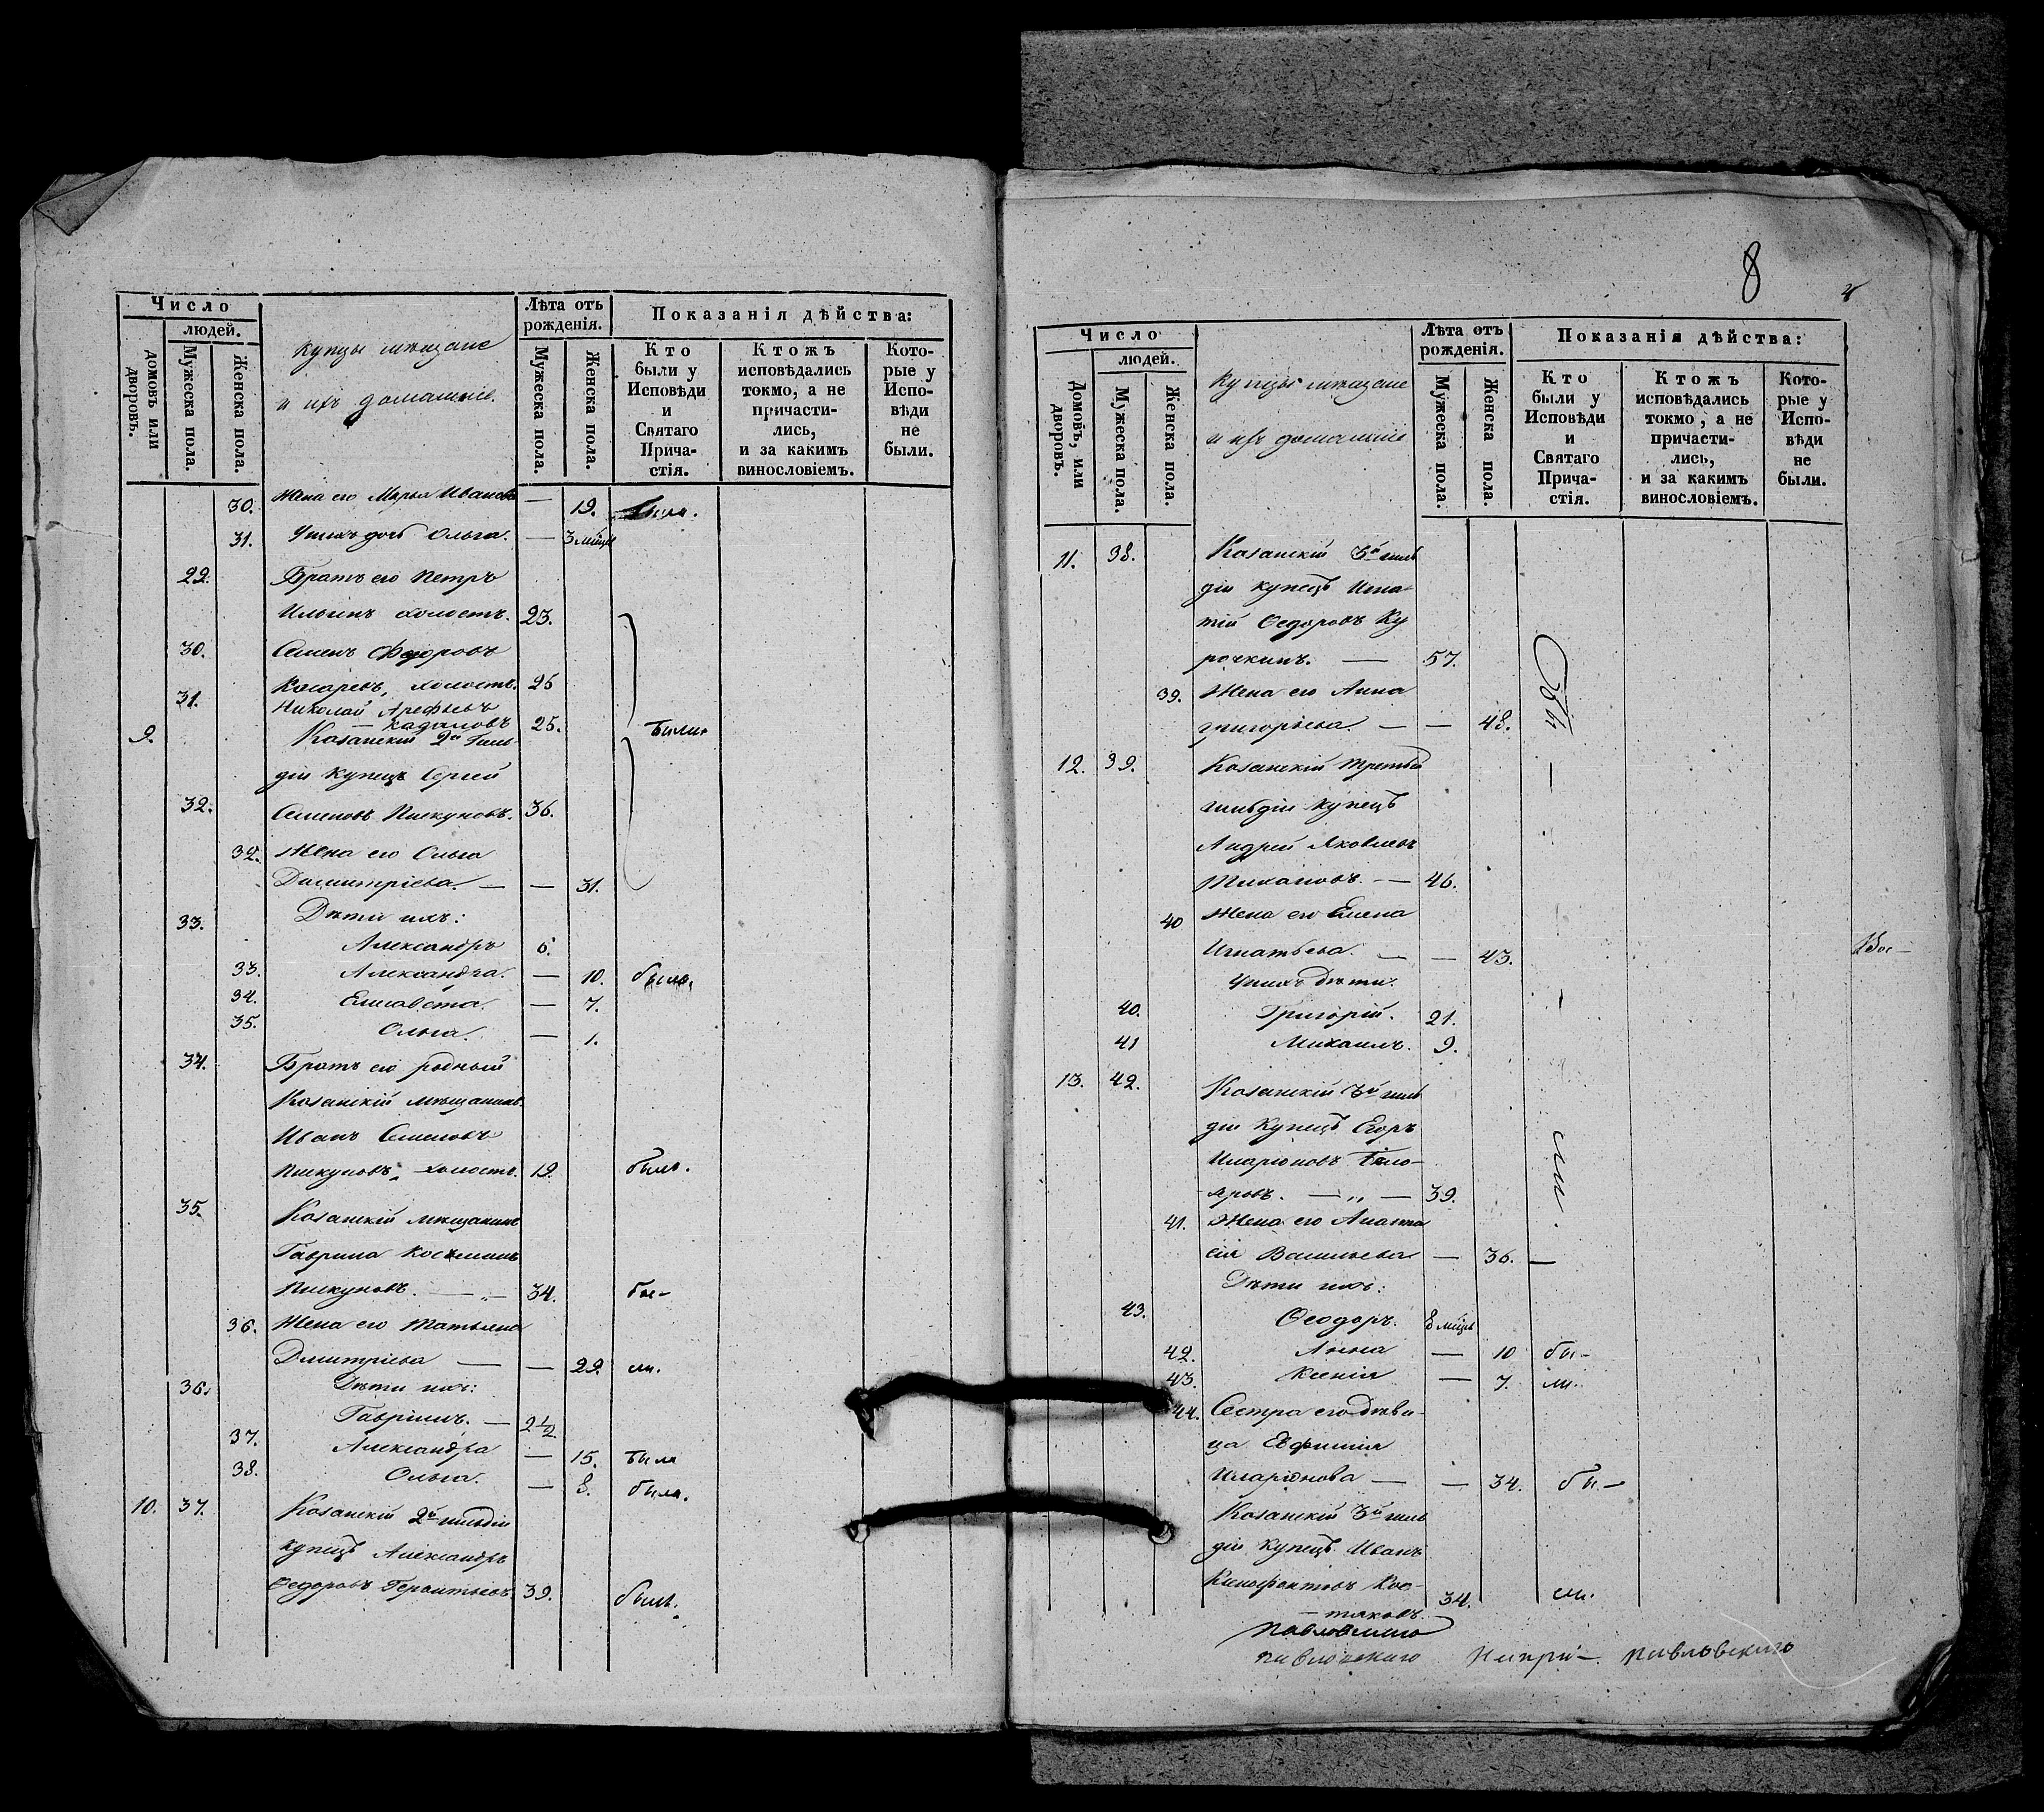 Число
людей.
домовъ или дворовъ.
Мужеска пола.
Женска пола.
Купцы мѣщане
и ихъ домашніе.
Лѣта отъ рожденія.
Мужеска пола.
Женска пола.
Показанія дѣйства:
Кто были у Исповѣди и Святаго Прича-стія.
Ктожъ исповѣдались токмо, а не причасти-лись, и за какимъ винословіемъ.
Кото-рые у Испо-вѣди не были.
30. Жена его Марья Иванова — 19. была.
31. У нихъ дочь Ольга. — 3 мѣсц.
29. Братъ его Петръ
Ильинъ холостъ. 23.
30. Семенъ Федоровъ
Косаревъ, холостъ. 25
31. Николай Арефьевъ
25. Были.
9. Казанскій 2й Гиль-
діи Купецъ Сергей
32. Семеновъ Пискуновъ. 36.
32. Жена его Ольга
Димитріева. — — 31.
33. Дѣти ихъ:
Александръ 6.
33. Александра. — 10. была.
34. Елисавета. — 7.
35. Ольга. — 1.
34. Братъ его родный
Казанскій мѣщанинъ
Иванъ Семеновъ
Пискуновъ, холостъ. 19. былъ.
35. Казанскій мѣщанинъ
Гаврила
Пискуновъ. — „ — 34. бы-
36. Жена его Татьяна
Дмитріева — — 29. ли.
36. Дѣти ихъ:
Гавріилъ. — 2 1/2
37. Александра — 15. была
38. Ольга. — 8. была.
10. 37. Казанскій 2й гильдіи
купецъ Александръ
Федоровъ 39. былъ.
8
Число
людей.
Домовъ, или дворовъ.
Мужеска пола.
Женска пола.
Купцы мѣщане
и ихъ домашніе
Лѣта отъ рожденія.
Мужеска пола.
Женска пола.
Показанія дѣйства:
Кто были у Исповѣди и Святаго Прича-стія.
Ктожъ исповѣдались токмо, а не причасти-лись, и за какимъ винословіемъ.
Кото-рые у Испо-вѣди не были.
11. 38. Казанскій 3й гиль
діи купецъ Игна-
тій Федоровъ Ку
рочкинъ. — 57.
39. Жена его Анна
Григорьева. — — 48.
бы —
12. 39. Казанскій третьей
гильдіи купецъ
Андрей Яковлевъ
— 46.
40 Жена его Елена
Игнатьева. — — 43.
У нихъ Дѣти.
40. Григорій. 21.
41 Михаилъ. 9.
13. 42. Казанскій 3й гиль
діи Купецъ Егоръ
Иларіоновъ Бѣло-
яровъ. — „ — 39.
ли.
41. Жена его Анаста
сія Васильева — 36. —
Дѣти ихъ:
43. Феодоръ. 8 мѣсц.
42. Анна — 10 бы-
43. Ксенія — 7. ли.
44. Сестра его дѣви-
ца Евфимія
Иларіонова — — 34. бы-
Казанскій 3й гиль
діи Купецъ Иванъ
Ксенофонтовъ Кос- 34. ли.
— тяковъ.
Павловскаго
Павловскаго
Павловскаго